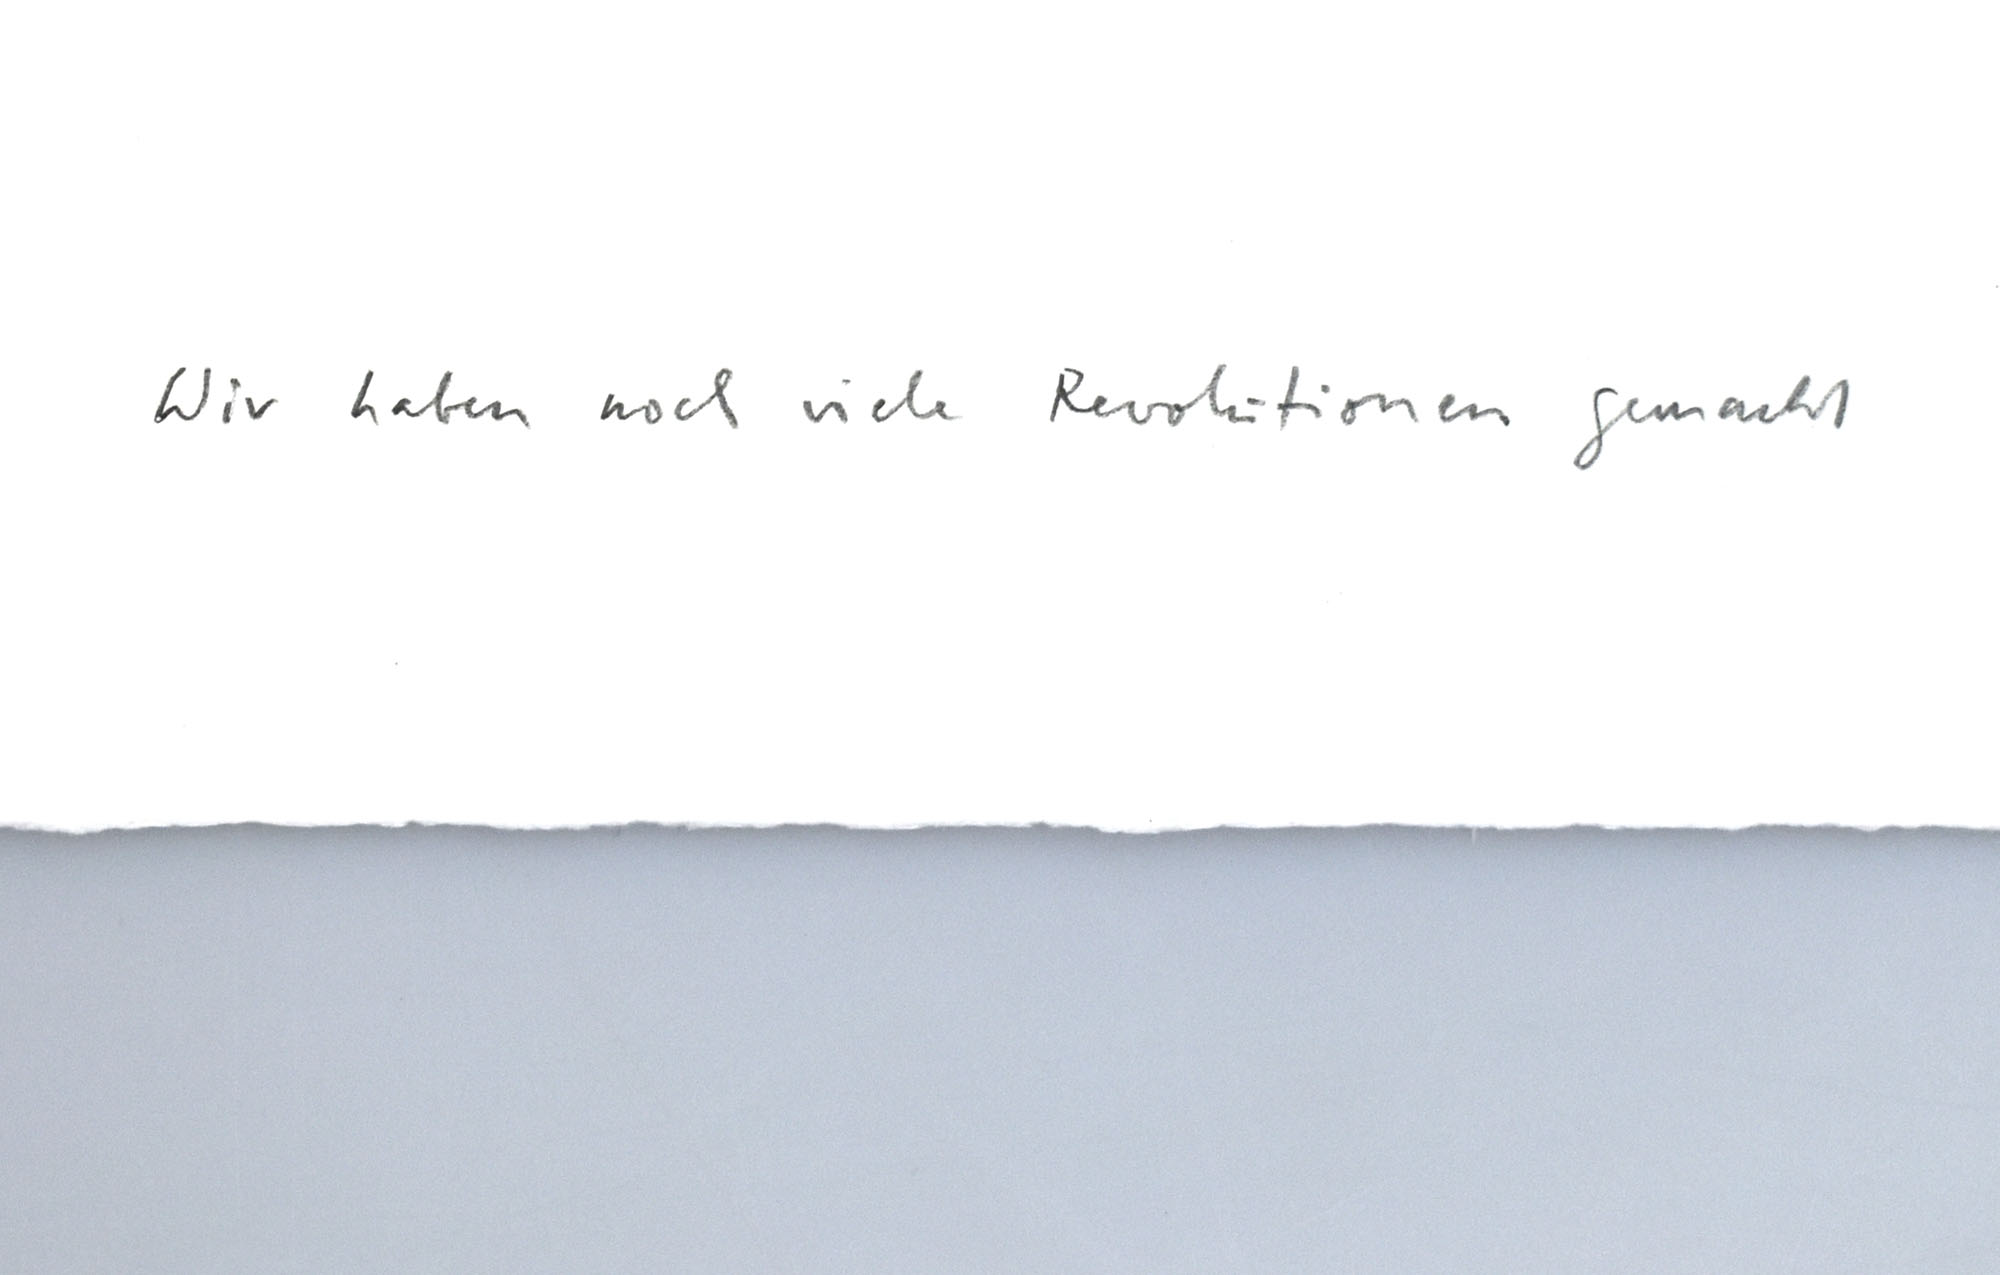 Wir haben noch viele Revolutionen gemacht